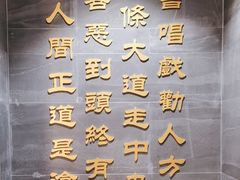 書唱戲勸人方
條大道走中央
善惡到頭終有
人間正道是滄